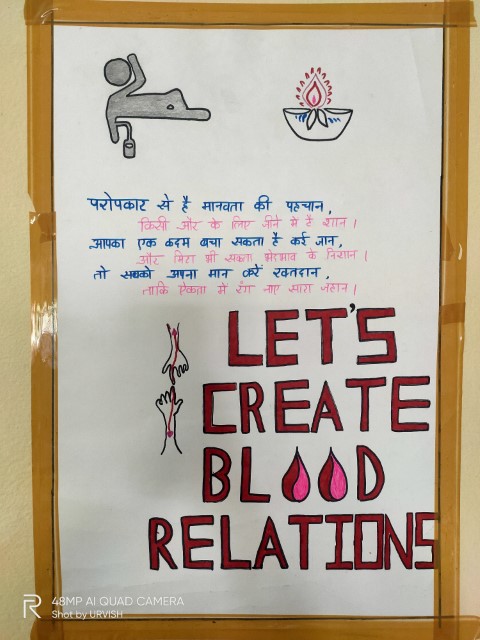 परोपकार से है मानवता की पहचान,
किसी और के लिए जीने में है शान।
आपका एक कदम बचा सकता है कई जान,
और मिटा भी सकता भेदभाव के निशान।
तो सबको अपना मान करें रक्तदान,
ताकि ऐकता में रंग जाए सारा जहान।
LET'S
CREATE
BLOOD
RELATIONS
48MP AI QUAD CAMERA
Shot by URVISH